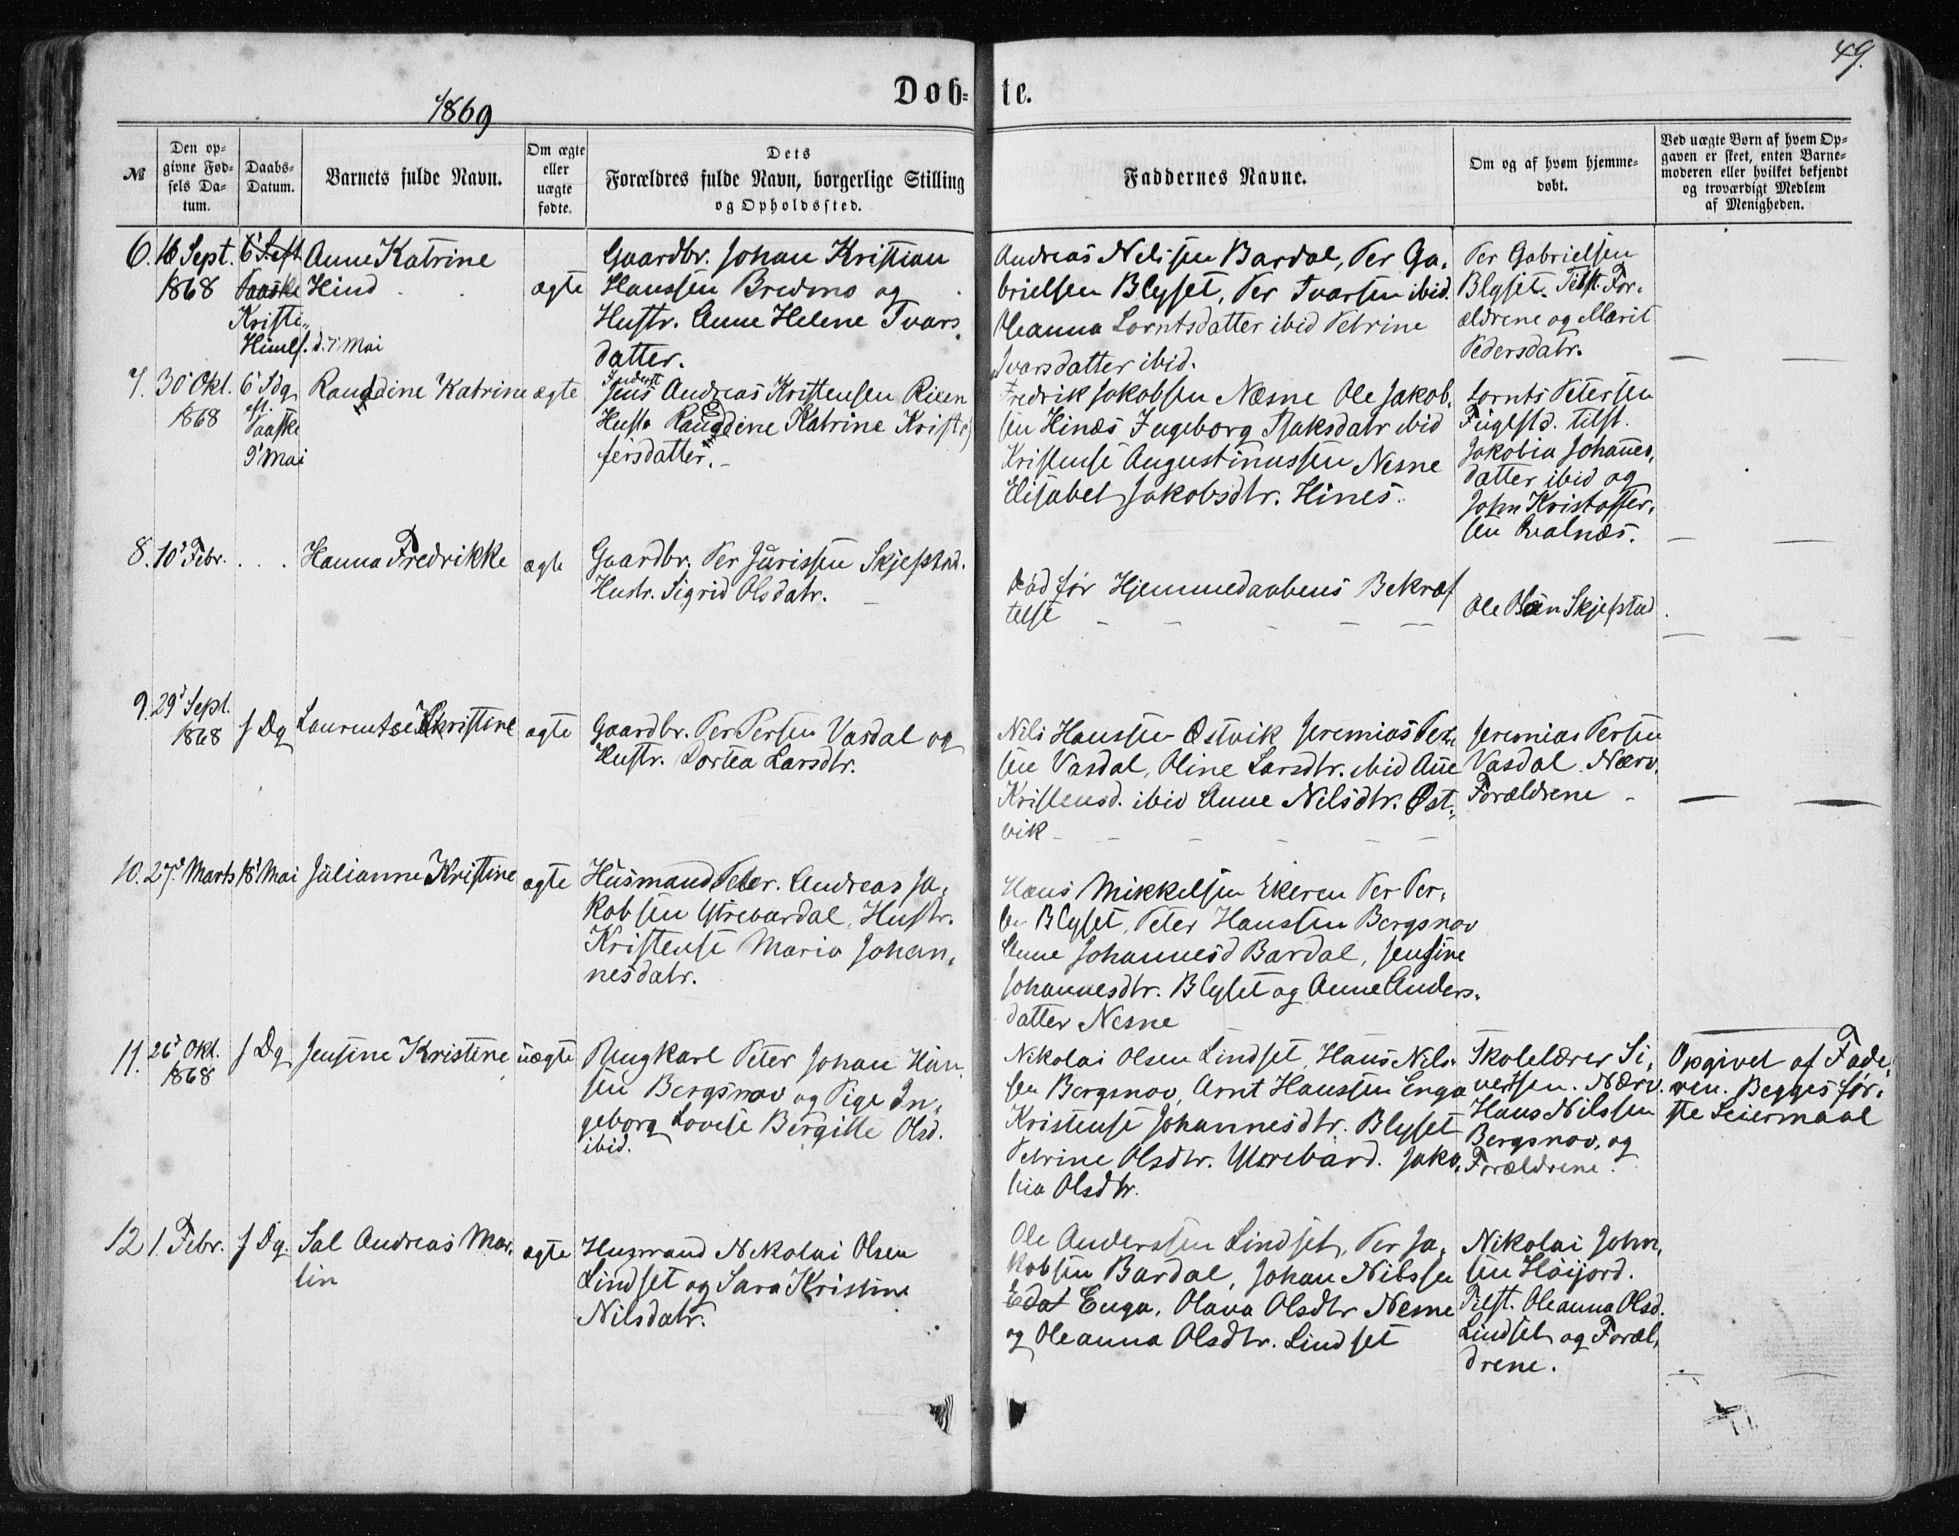 49.
Døb-
te.
1869
№
Den op-
givne Fød-
sels Da-
tum.
Daabs-
Datum.
Barnets fulde Navn.
Om ægte
eller
uægte
fødte.
Dets
Forældres fulde Navn, borgerlige Stilling
og Opholdssted.
Faddernes Navne.
Om og af hvem hjemme-
døbt.
Ved uægte Børn af hvem Op-
gaven er skeet, enten Barne-
moderen eller hvilket bekjendt
og troværdigt Medlem
af Menigheden.
6. Sept.
1868
Kristi
Himlf. d. 7 Mai
Anne Katrine
Hind
ægte
Gaardbr. Johan Kristian
Hanssen Bredmo og
Hustr. Anne Helene Ivars
datter.
Andreas Nilssen Bardal, Per Ga,
brielsen Blyset, Per Ivarsen ibid.
Oleanna Lorntsdatter ibid Petrine
Ivarsdatter ibid.
Per Gabrielsen
Blyset. Tilst. For-
ældrene og Marit
Pedersdatr.
7. 30' Okt.
1868
6' Sdg
eft.
Paaske
9' Mai
Katrine
ægte
Inderst
Jens Andreas Kristensen
Katrine Kristo
fersdatter.
Fredrik Jakobsen Næsne Ole Jakob,
sen Hinæs Ingeborg Isaksdatr ibid
Kristense Augustinussen Nesne
Elisabet Jakobsdtr. Hines.
Lornts Petersen
Fuglstd. tilst.
Jakobia Johannes,
datter ibid og
John Kristoffer,
sen
8. 10' Febr. . . .
Hanna Fredrikke
ægte
Gaardbr. Per Jurissen Skjefstad.
Hustr. Sigrid Olsdatr.
Død før Hjemmedaabens Bekræf
telse
Ole Olsen Skjefstad
9. 29' Sept.
1868
s Dg
Kristine
ægte
Gaardbr. Per Persen Vasdal og
Hustr. Dortea Larsdtr.
Nils Hanssen Østvik Jeremias Per
sen Vasdal, Oline Larsdtr. ibid Ane
Kristensd. ibid Anne Nilsdtr. Øst,
vik
Jeremias Persen
Vasdal. Nærv.
Forældrene
10. 27' Marts
18' Mai
Julianne Kristine
ægte
Husmand Peter Andreas Ja,
kobsen Ytrebardal, Hustr.
Kristense Maria Johan,
nesdatr.
Hans Mikkelsen Ekeren Per Per,
sen Blyset, Peter Hanssen Bergsnov
Anne Johannesd Bardal, Jensine
Johannesdtr. Blyset og Anne Anders,
datter Nesne
11. 26' Okt.
1868
s Dg
Jensine Kristine
uægte
Ungkarl Peter Johan Han,
sen Bergsnov og Pige In,
geborg Lovise Bergitte Olsd.
ibid.
Nikolai Olsen Lindset, Hans Nils,
sen Bergsnov, Arnt Hanssen Enga
Kristense Johannesdtr. Blyset
Petrine Olsdtr. Ytrebard. Jako,
bia Olsdtr.
Skolelærer Si,
vertsen. Nærv.
Hans Nilssen
Bergsnov, og
Forældrene.
Opgivet af Fade,
ren. Begges før,
ste Leiermaal
12 1. Febr.
s Dg.
Sal Andreas Mar,
tin
ægte
Husmand Nikolai Olsen
Lindset og Sara Kristine
Nilsdatr.
Ole Anderssen Lindset, Per Ja,
kobsen Bardal, Johan Nilssen
Enga, Olava Olsdtr Nesne
og Oleanna Olsdtr. Lindset
Nikolai John,
sen Høijord.
Tilst. Oleanna Olsd.
Lindset og Foræl,
drene.